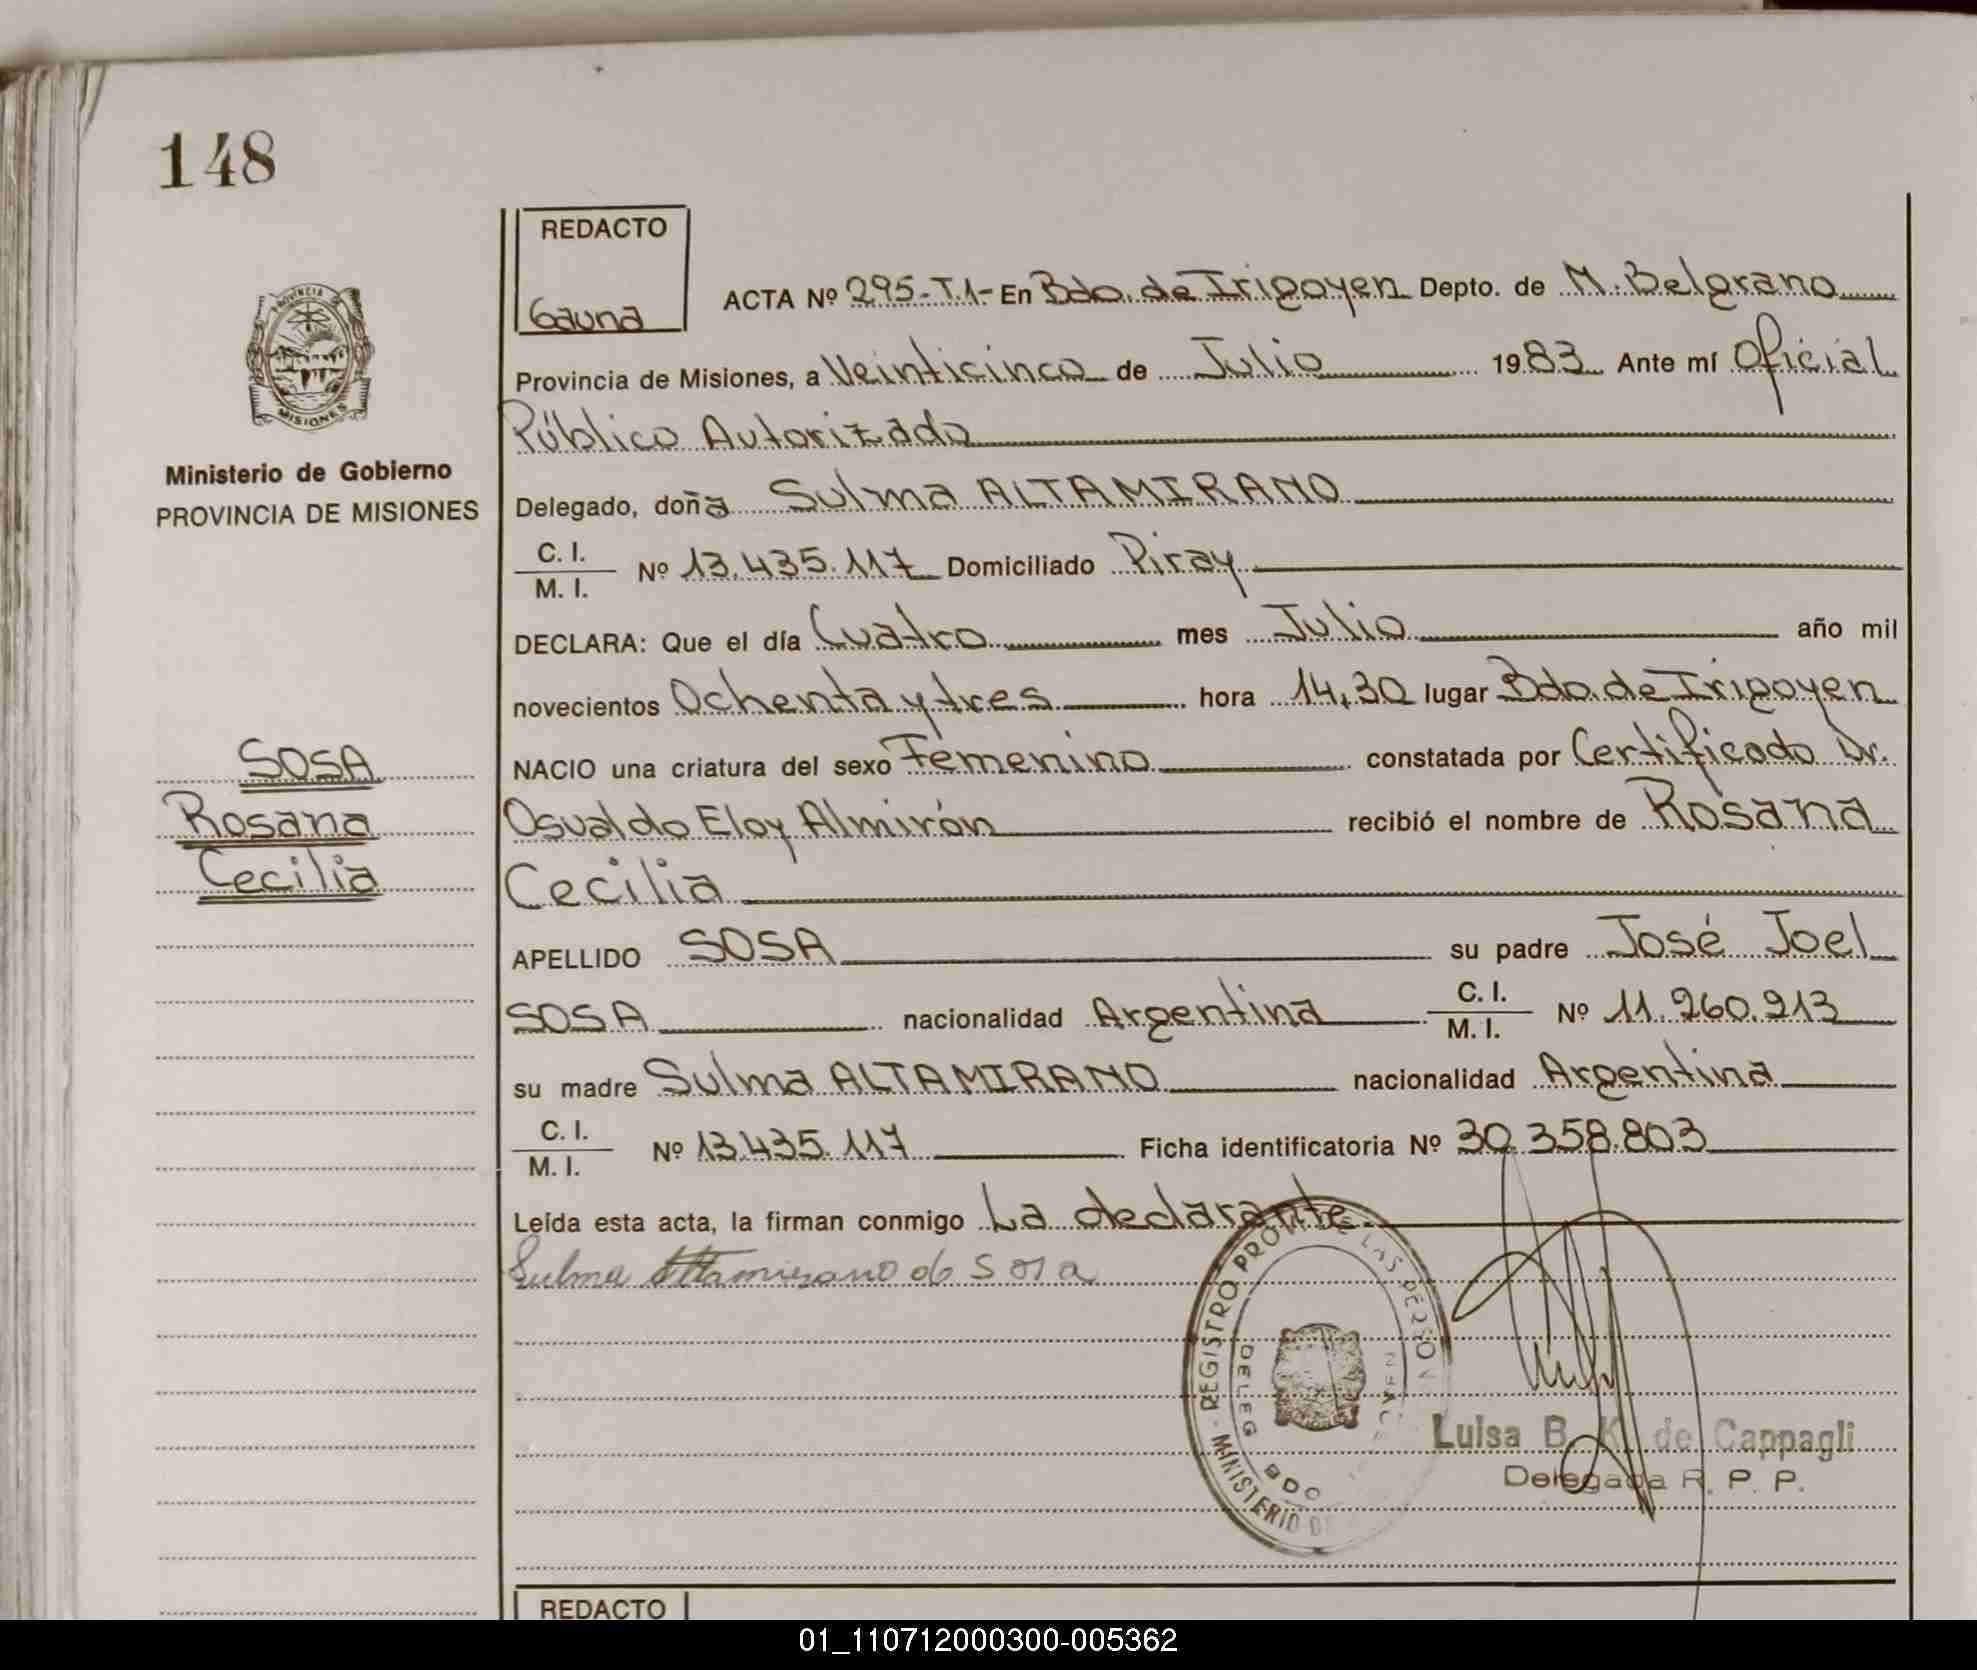 148
REDACTO
Gauna
ACTA Nº 295-T.1- En Bdo. de Irigoyen Depto. de M. Belgrano
Provincia de Misiones, a Veinticinco de Julio 1983 Ante mí Oficial
Público Autorizado
Delegado, doña Sulma ALTAMIRANO
C. I.
M. I.
Nº 13.435.117 Domiciliado Piray
DECLARA: Que el día Cuatro mes Julio año mil
novecientos Ochenta y tres hora 14,30 lugar Bdo. de Irigoyen
NACIO una criatura del sexo Femenino constatada por Certificado Dr.
Osvaldo Eloy Almirón recibió el nombre de Rosana
Cecilia
APELLIDO SOSA su padre José Joel
SOSA nacionalidad Argentina C. I. M. I. Nº 11.260.213
su madre Sulma ALTAMIRANO nacionalidad Argentina
C. I.
M. I.
Nº 13.435.117 Ficha identificatoria Nº 30.358.803
Leída esta acta, la firman conmigo La declarante
Sulma Altamirano de Sosa
PROVINCIA DE
MISIONES
Ministerio de Gobierno
PROVINCIA DE MISIONES
SOSA
Rosana
Cecilia
REGISTRO PROV DE LAS PERSON
DELEG BDO
MINISTERIO DE
Luisa B. K. de Cappagli
Delegada R. P. P.
REDACTO
01_110712000300-005362